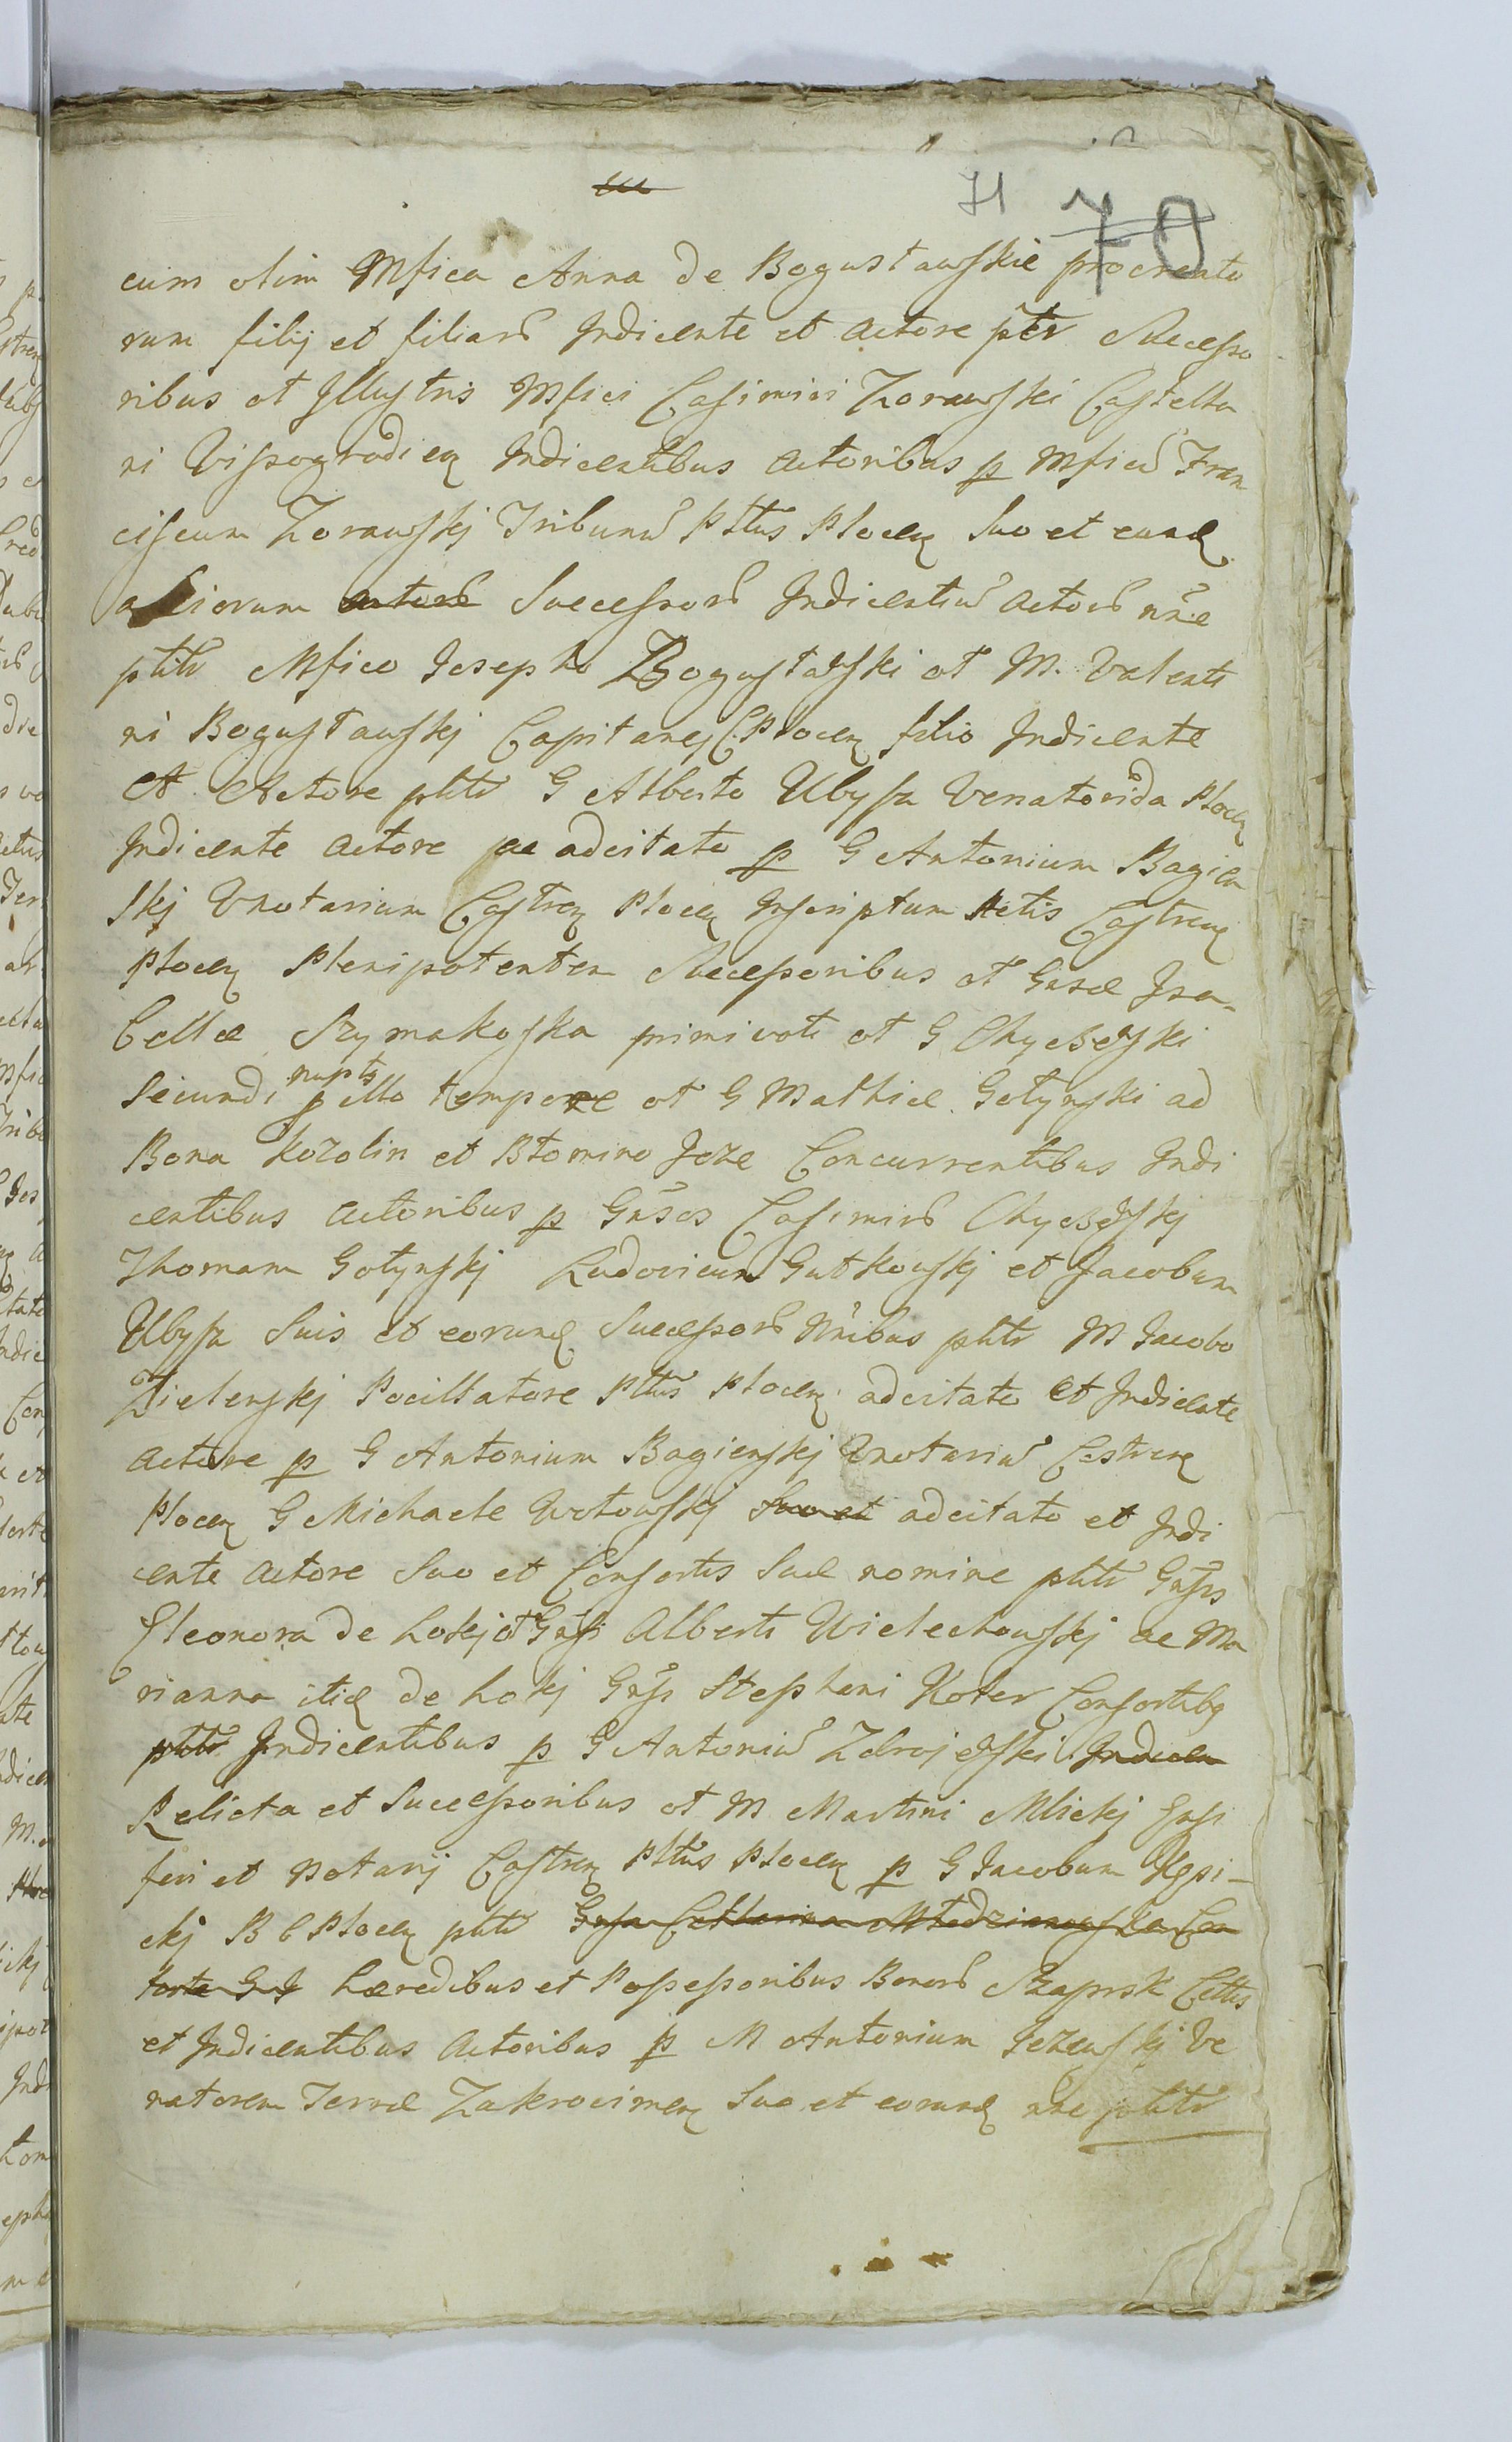 71 70
cum olim Mfica Anna de Bogusławskie procreato
rum filij et filiarũ Indicente et Actore ptr Successo
ribus ot Illustris Mfici Casimiri Zorawski Castella
ni Vissogradien Indicentibus Actoribus p Mficũ Fran
ciscum Zorawskj Tribunũ Pttus Plocen Suo et eund
aliorum Successorũ Indicentiũ Actorũ nñe
pttr Mfico Josepho Bogusławski ot M. Valenti
ni Bogusławskj Capitanej C. Plocen filio Indicente
et Actore pttr G Alberto Ubysz Venatorida Plocen
Indicente Actore ac adcitato p G Antonium Bagien
skj Vnotarium Castren Plocen Inscriptum Actis Castren
Plocen Plenipotentem Successoribus ot Gnsæ Isa-
bellæ Szymakoska primi voti ot G Chyczewski
Secundi nupts p illo tempore ot G Mathiæ Gołynski ad
Bona Kozolin et Btomino Jeze Concurrentibus Indi
centibus Actoribus p Gnsos Casimirũ Chyczewskj
Thomam Gołynskj Ludovicum Gutkowskj et Jacobum
Ubysz Suis et eorund Successorũ Nñibus pttr M Jacobo
Zielenskj Pocillatore Pttus Plocen adcitato et Indicente
Actore p G Antonium Bagienskj Vnotariũ Castren
Plocen G Michaele Wotowskj Suo et adcitato et Indi
cente Actore Suo et Consortis Suæ nomine pttr Gnsis
Eleonora de Lokj ot Gnsi Alberti Wielechowskj ac Ma
rianna itid de Lokj Gnsi Stephani Koter Consortibg
pttr Indicentibus p G Antoniũ Zdrojewski Indicen
Relicta et Successoribus ot M Martini Mlickj Ensi
feri et Notarij Castren Pttus Plocen p G Jacobum
ckj B C Plocen pttr Gnsa Catharina Młodzianowska Con
sorte G J hæredibus et Possessoribus Bonorũ Szaprsk Cittis
et Indicentibus Actoribus p M Antonium Jezewskj Ve
natorem Terræ Zakrocimen Suo et eorund nñe pttr